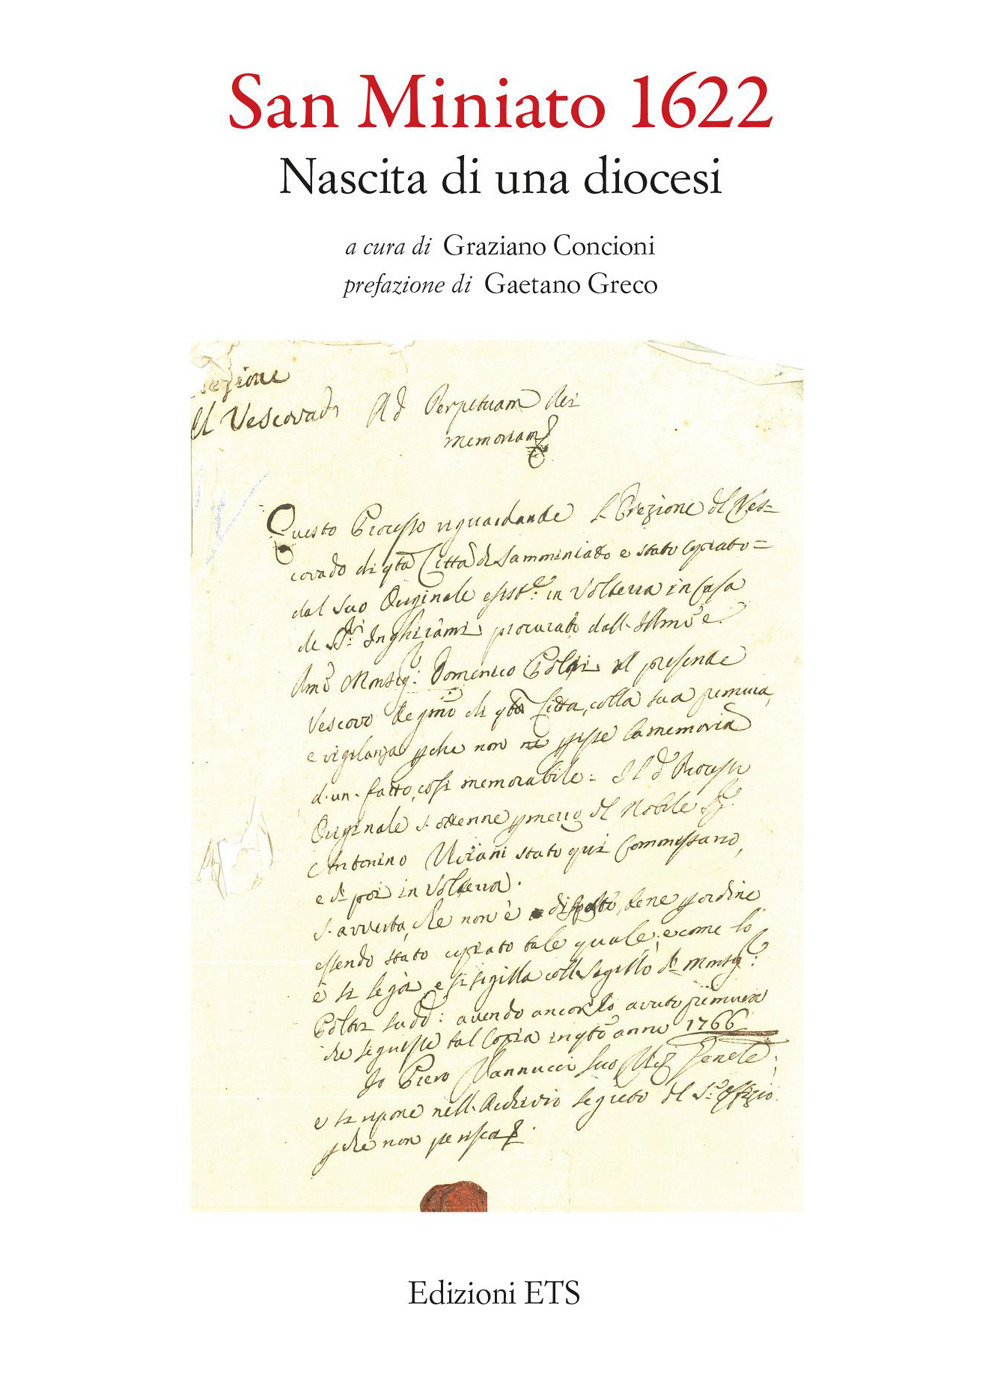 San Miniato 1622
Nascita di una diocesi
a cura di Graziano Concioni
prefazione di Gaetano Greco
Vescovado
Ad Perpetuam Rei
memoriam
Questo Processo riguardande l'Erezione del Ves=
covado di qta Città di Samminiato e stato copiato=
dal suo Originale esistte in Volterra in Casa
de Sri Inghirami procurato dall Illmo e
Rmo Monsig: Domenico Poltri al presende
Vescovo degmo di qta Citta, colla sua premura,
e vigilanza pche non perisse la memoria
d'un fatto, cosi memorabile= Il do Processo
Originale s'ottenne p mezzo del Nobile Sr
Antonino stato qui Commissario,
e di poi in Volterra.
S'avverta, che non è disposto, bene p ordine
essendo stato copiato tale quale, e come lo
è si lega, e si sigilla coll Sagillo di Monsig:
Poltri sudd: avendo ancor lo avuto premura
che seguisse tal Copia in qsto anno 1766
Io Piero Vannucci suo
e si ripone nell Archivio segreto del St Offizio
pche non perisca
Edizioni ETS